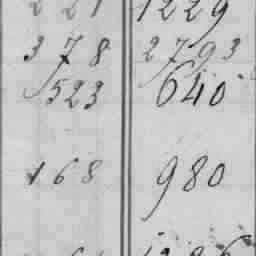 221 1229
378 2793
1523 640
168 980